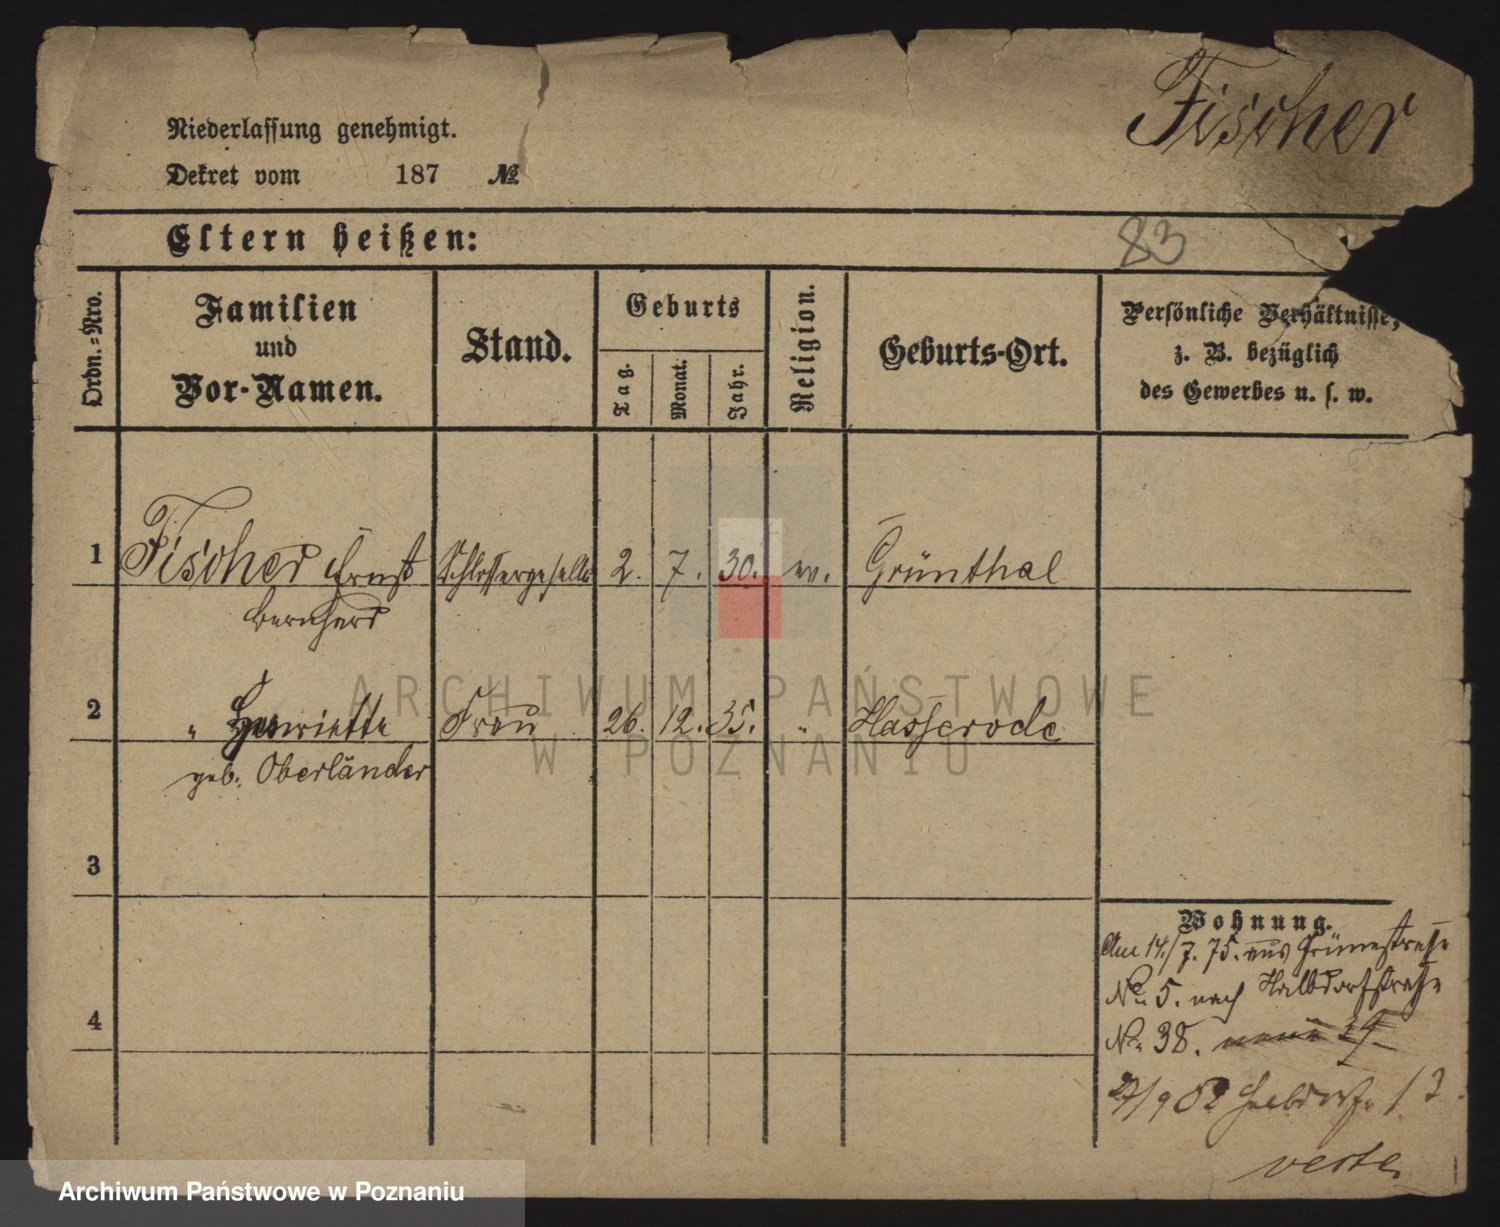 Fischer
Niederlassung genehmigt.
Dekret vom 187 №
83
Eltern heißen:
Ordn.=Nro.
Familien
und
Vor-Namen.
Stand.
Geburts
Tag.
Monat.
Jahr.
Religion.
Geburts-Ort.
Persönliche Verhältnisse,
z. B. bezüglich
des Gewerbes u. s. w.
1 Fischer Ernst Schlossergeselle 2. 7. 30. ev. Grünthal
Bernhard
2 " Henriette Frau 26. 12. 35. " Hasserode
geb. Oberländer
3
4
Wohnung.
Am 14./7. 75. aus Grünestraße
No. 5. nach Halbdorfstraße
No. 38.
verte
ARCHIWUM PAŃSTWOWE
W POZNANIU
Archiwum Państwowe w Poznaniu